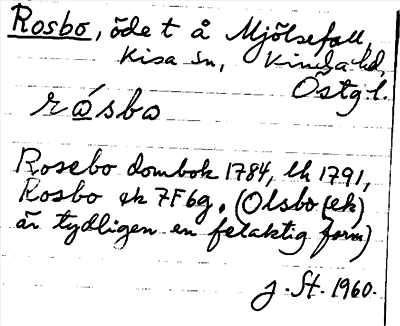 Rosbo, öde t å Mjölsefall,
Kisa sn, Kinda hd,
Östg l.
råsbo
Rosebo dombok 1784, lk 1791,
Rosbo ek 7F6g. (Olsbo (ek)
är tydligen en felaktig form)
J. St. 1960.